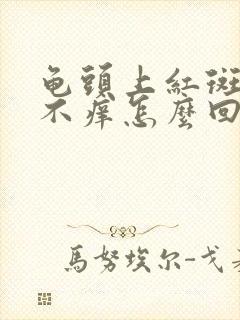 龟頭上紅斑
不痒怎麼回
馬努埃尔-戈